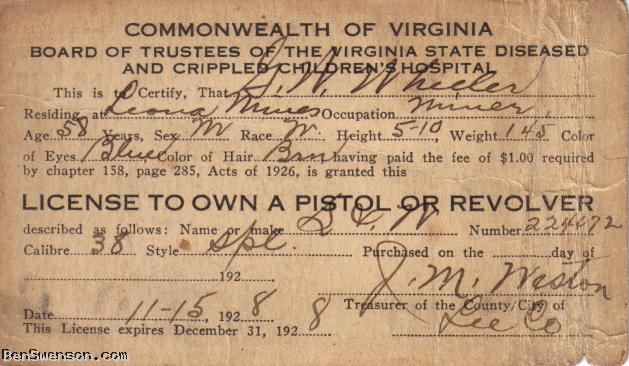 COMMONWEALTH OF VIRGINIA
BOARD OF TRUSTEES OF THE VIRGINIA STATE DISEASED
AND CRIPPLED CHILDREN'S HOSPITAL
This is to Certify, That J. W. Wheeler
Residing at Leona Mines Occupation Miner
Age 58 Years, Sex M Race W. Height 5-10, Weight 145 Color
of Eyes Blue Color of Hair Brn having paid the fee of $1.00 required
by chapter 158, page 285, Acts of 1926, is granted this
LICENSE TO OWN A PISTOL OR REVOLVER
described as follows: Name or make S & W Number 224672
Calibre 38 Style Spl. Purchased on the day of
192 J. M. Weston
Date 11-15, 1928 Treasurer of the County/City of
This License expires December 31, 1928 Lee Co
BenSwenson.com
BenSwenson.com